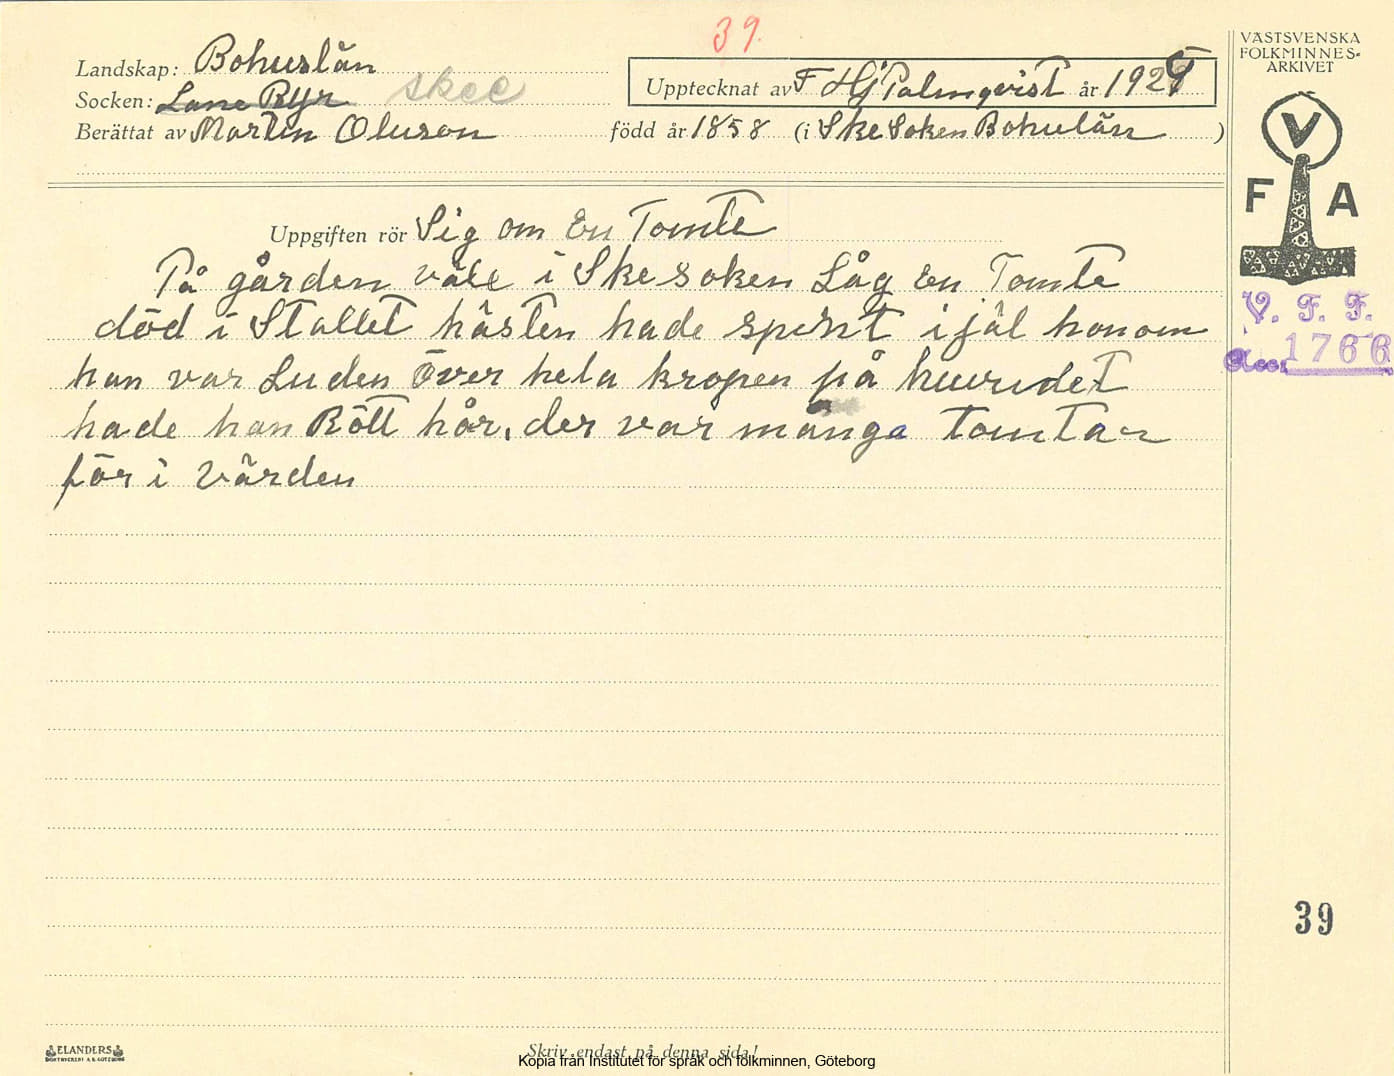 39.
VÄSTSVENSKA
FOLKMINNES-
ARKIVET
Landskap: Bohuslän
Socken: Lane Ryr skee
Upptecknat av F Hj Palmqvist år 1929
Berättat av Martin Oluson född år 1858 (i Ske Soken Bohulän)
V
F A
Uppgiften rör Sig om En Tomte
På gården våle i Ske soken Låg En Tomte
död i Stallet hästen hade spent i jäl honom
han var Luden Över hela kropen på huvudet
hade han Rött hår. der var många tomtar
för i Världen
V. F. F.
Acc: 1766
39
ELANDERS
BOKTRYCKERI A. B. GÖTEBORG
Skriv endast på denna sida!
Kopia från Institutet för språk och folkminnen, Göteborg